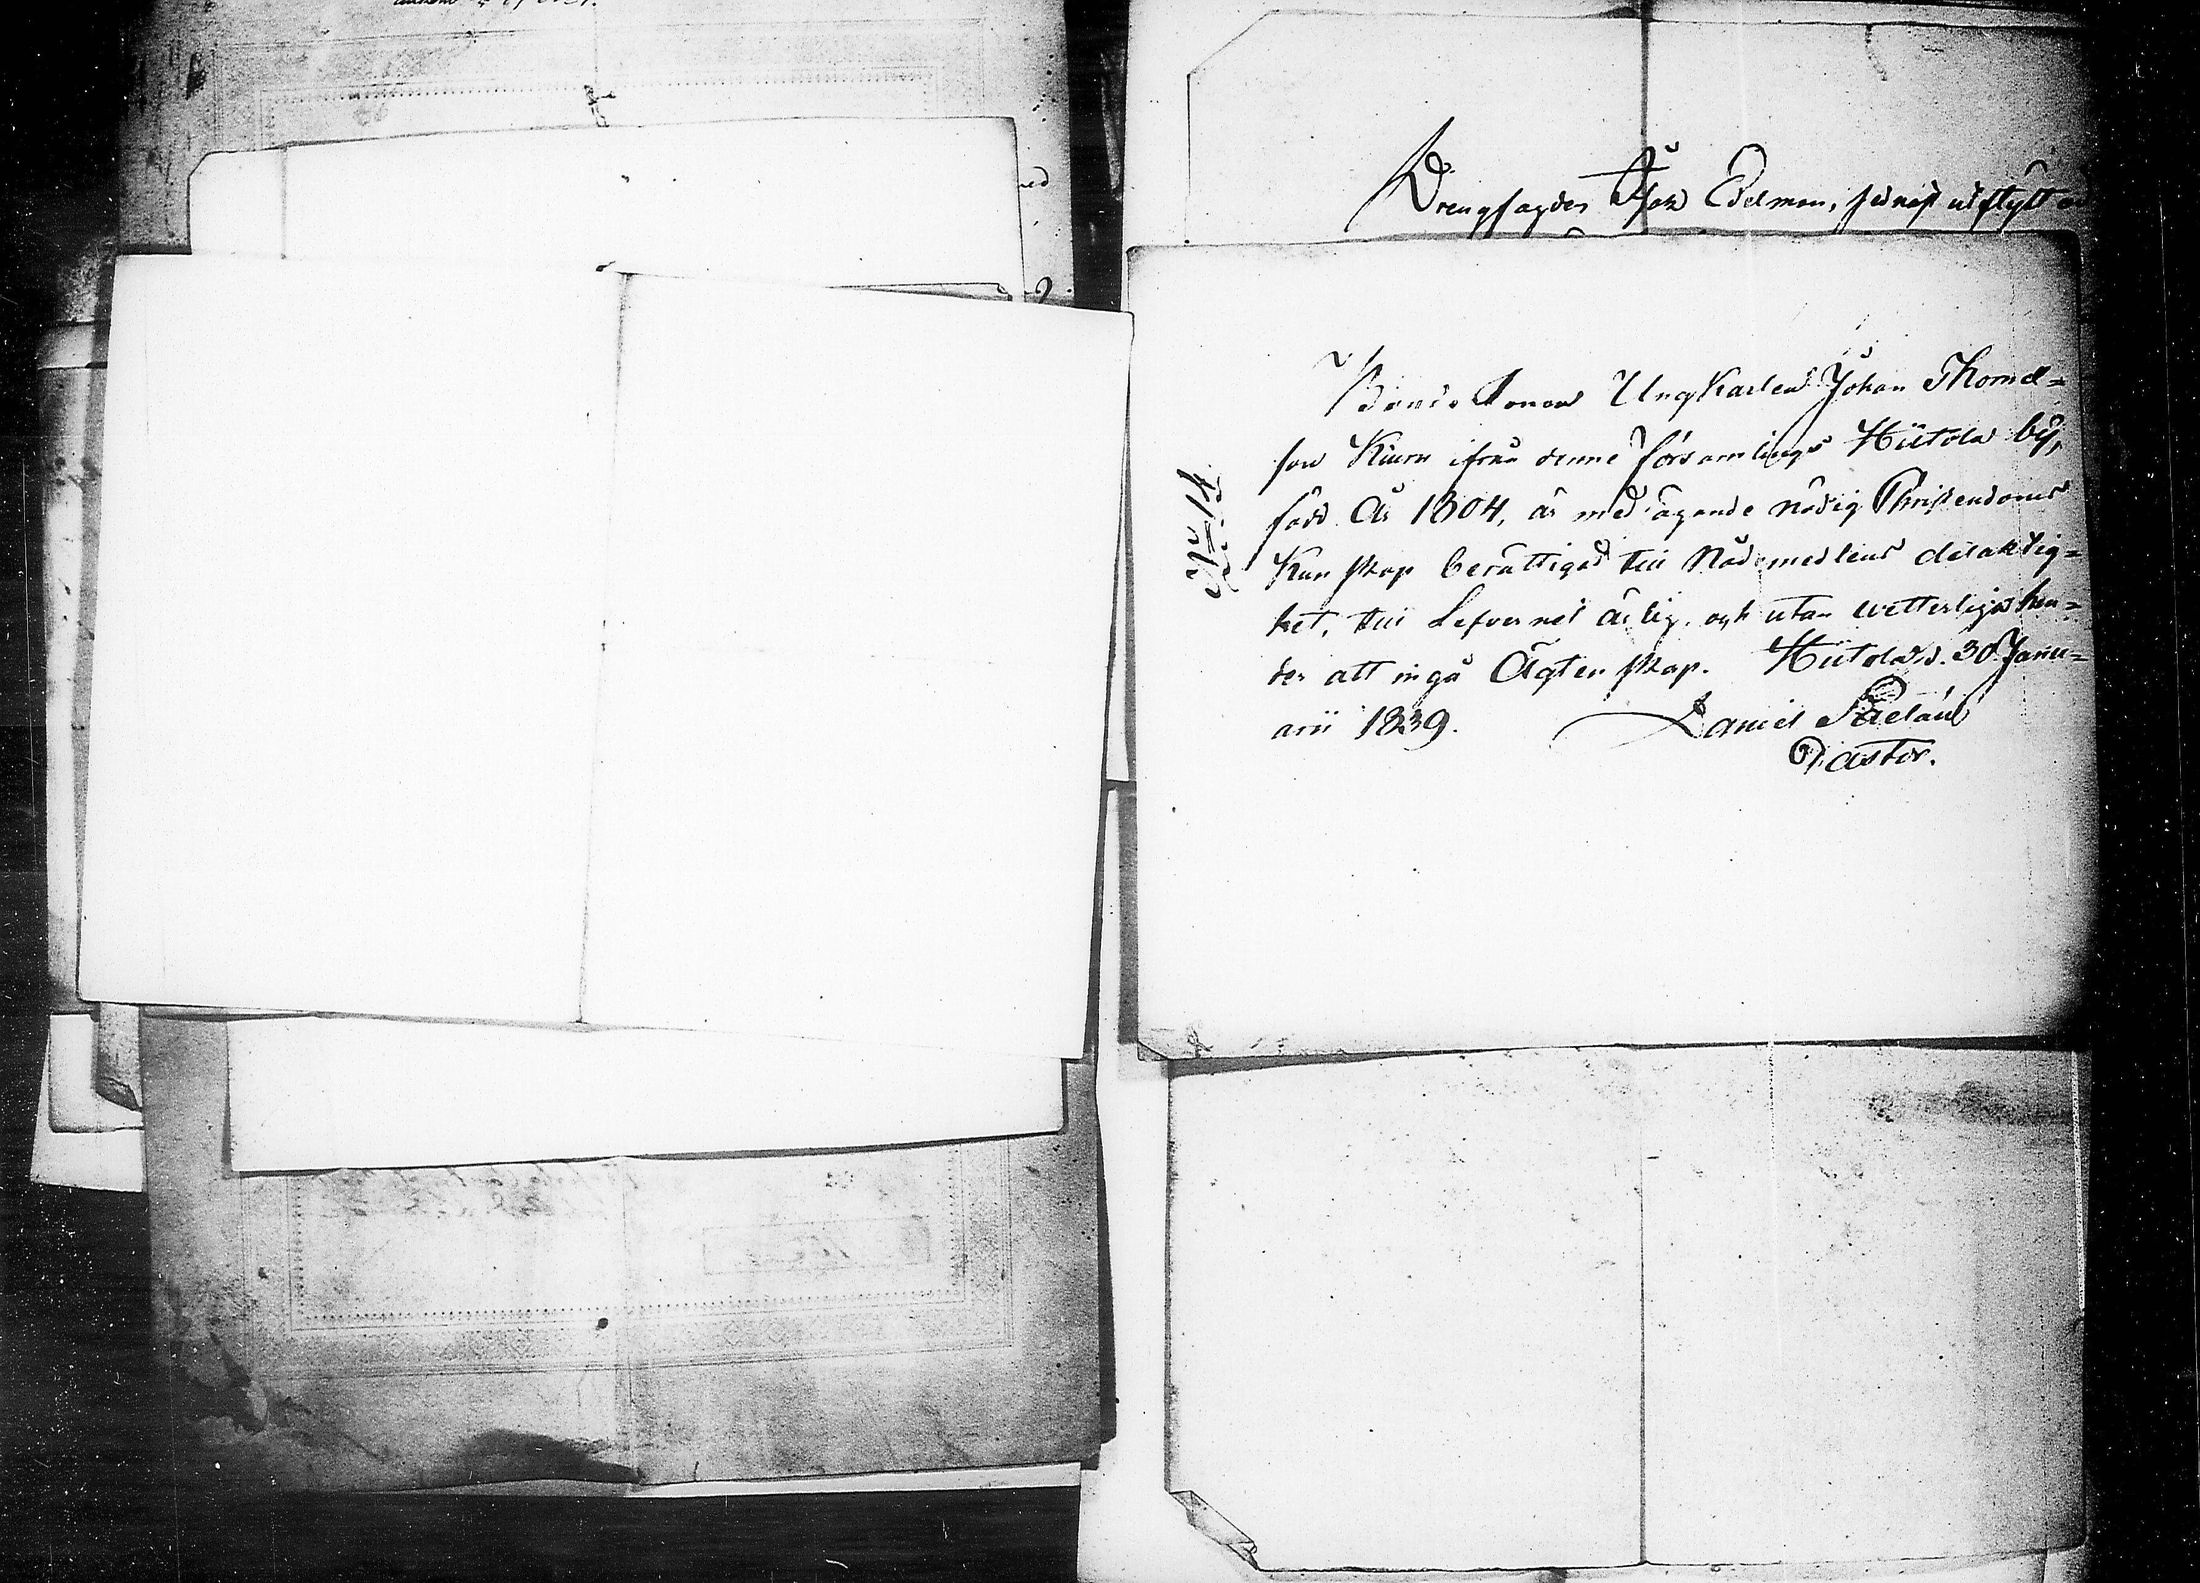 Drengfogden Isak Edelman, sednast utflytt
Bonde sonen Ungkarlen Johan Thomas=
son Kiuru ifrån denne församlings Hiitola by,
född År 1804, är med ägande nödig Christendoms
Kunskap berättigad till Nådemedlens delaktig=
het, till Lefvernet ärlig, och utan vetterliga hin=
der att ingå Ägtenskap. Hiitola d. 30 Janu=
arii 1839. Daniel
Pastor.